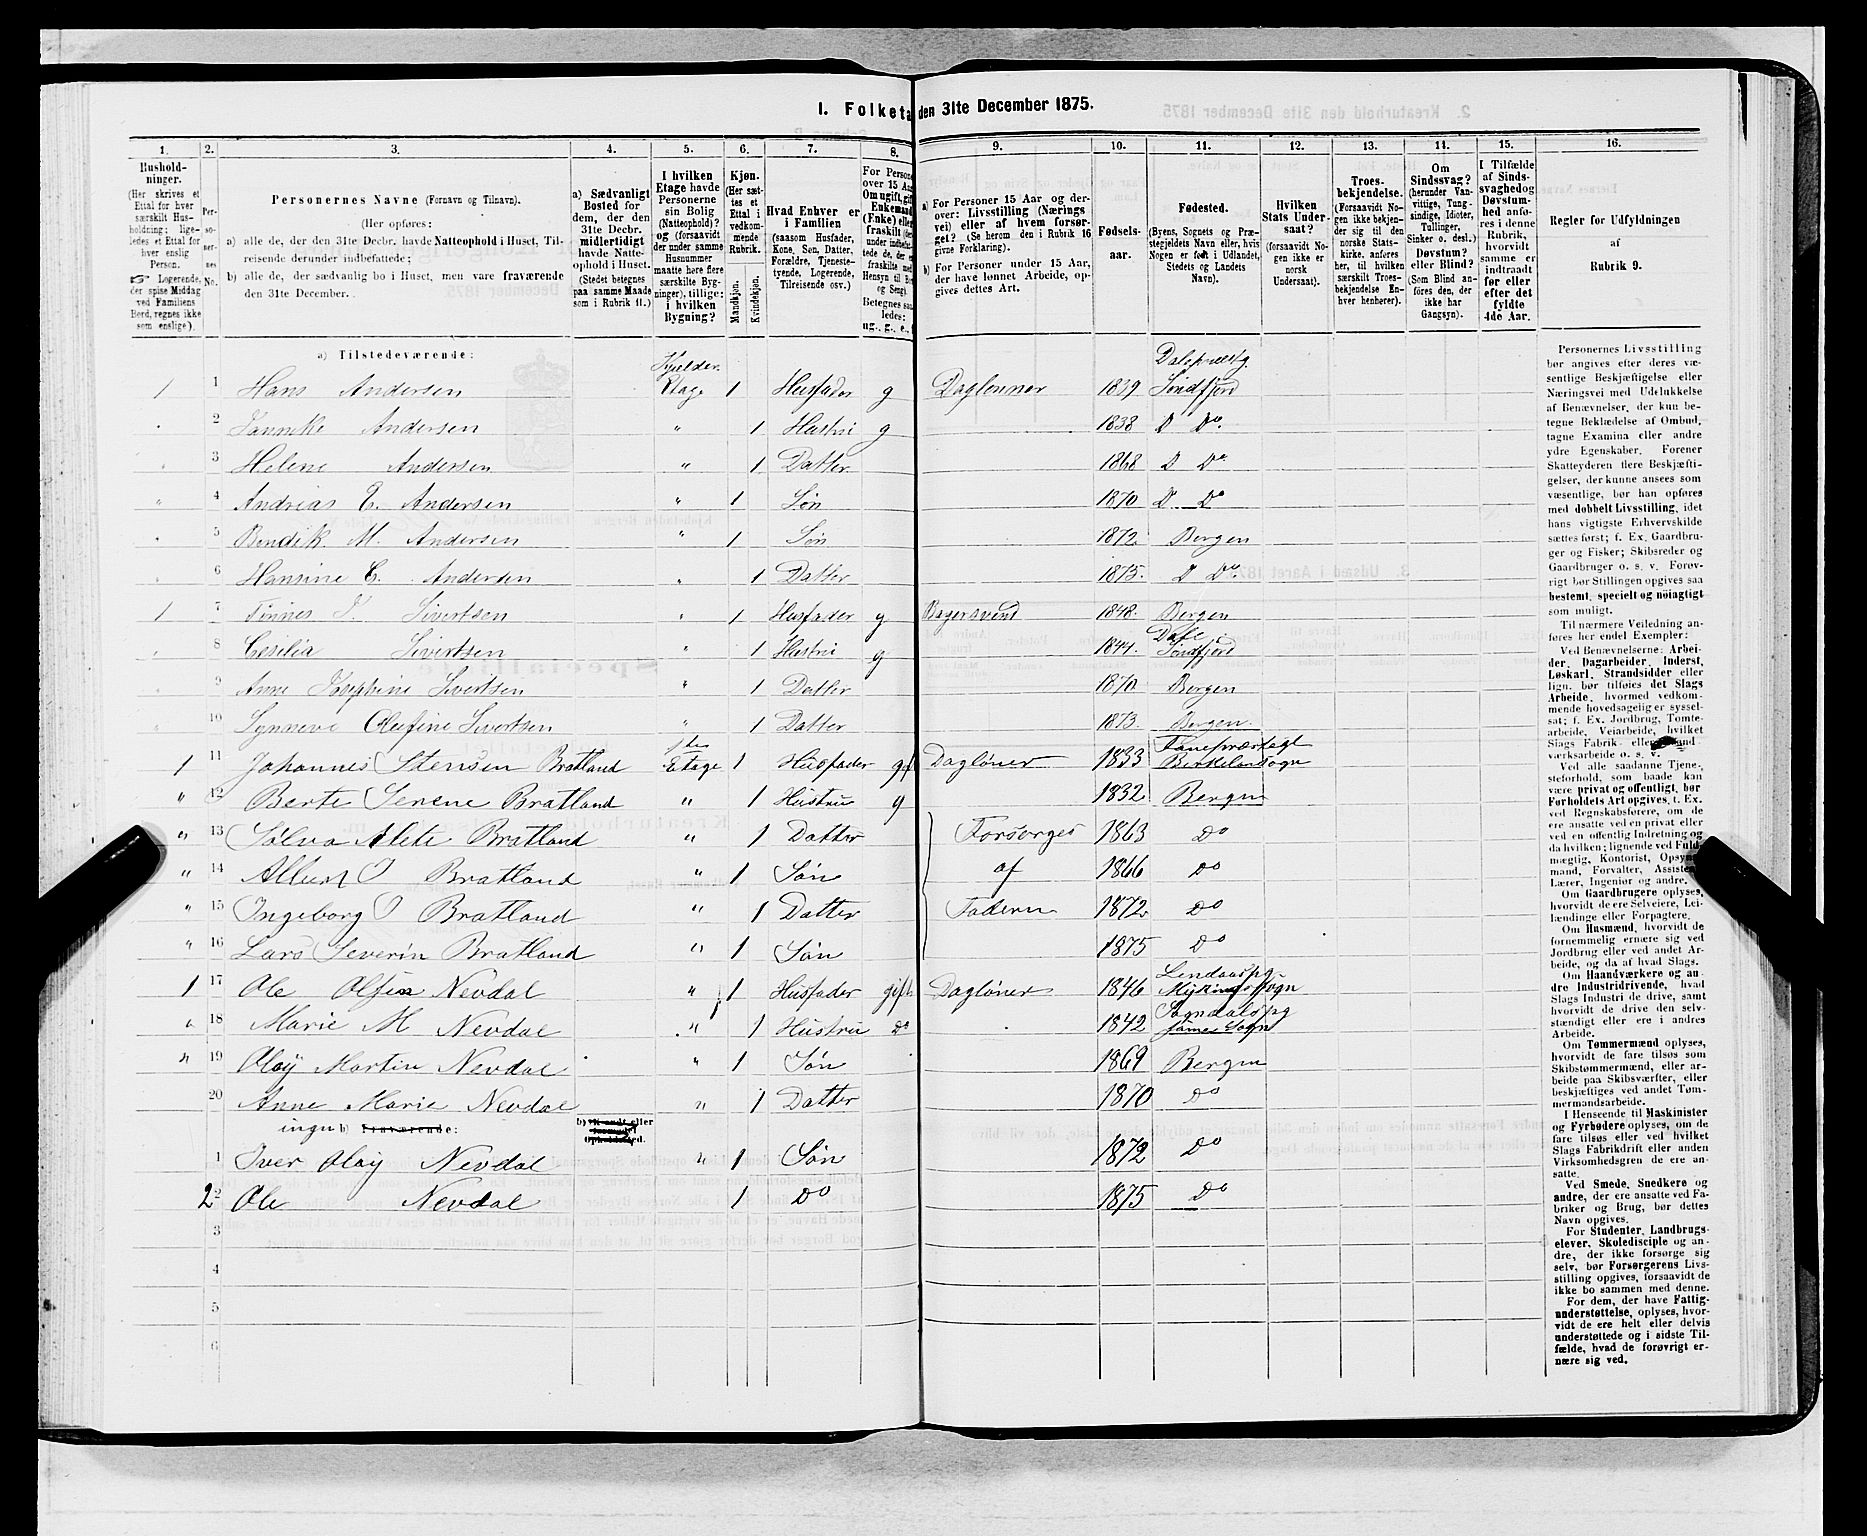 1. Folketa den 31te December 1875.
1. 2. 3. 4. 5. 6. 7. 8. 9. 10. 11. 12. 13. 14. 15. 16.
Husholdninger. (Her skrives et Ettal for hver særskilt Husholdning; ligeledes et Ettal for hver enslig Person. ☞ Logerende, der spise Middag ved Familiens Bord, regnes ikke som enslige).
Personernes No.
Personernes Navne (Fornavn og Tilnavn).
(Her opføres:
a) alle de, der den 31te Decbr. havde Natteophold i Huset, Tilreisende derunder indbefattede;
b) alle de, der sædvanlig bo i Huset, men vare fraværende den 31te December.
a) Sædvanligt Bosted for dem, der den 31te Decbr. midlertidigt havde Natteophold i Huset. (Stedet betegnes paa samme Maade som i Rubrik 11.)
I hvilken Etage havde Personerne sin Bolig (Natteophold)? og (forsaavidt der under samme Husnummer maatte høre flere særskilte Bygninger), tillige: i hvilken Bygning?
Kjøn. (Her sættes et Ettal i vedkommende Rubrik. Mandkjøn. Kvindekjøn.
Hvad Enhver er i Familien (saasom Husfader, Kone, Søn, Datter, Forældre, Tjenestetyende, Logerende, Tilreisende osv.)
For Persone over 15 Aa Om ugift, gif Enkemand (Enke) elle fraskilt
Betegnes saa ledes: ug., g., e.,
a) For Personer 15 Aar og derover: Livsstilling (Nærings vei) eller af hvem forsørget? (Se herom den i Rubrik 16 givne Forklaring).
b) For Personer under 15 Aar, der have lønnet Arbeide, opgives dettes Art.
Fødselsaar.
Fødested. (Byens, Sognets og Præstegjeldets Navn eller, hvis Nogen er født i Udlandet, Stedets og Landets Navn).
Hvilken Stats Undersaat? (forsaavidt Nogen ikke er norsk Undersaat).
Troesbekjendelse. (Forsaavidt Nogen ikke bekjender sig til den norske Statskirke, anføres her, til hvilken særskilt Troesbekjendelse Enhver henhører).
Om Sindssvag? (herunder Vanvittige, Tungsindige, Idioter, Tullinger, Sinker o. desl.) Døvstum? eller Blind? (Som Blind anføres den, der ikke har Gangsyn).
I Tilfælde af Sindssvaghed og Døvstumhed anføres i denne Rubrik, hvorvidt samme er indtraadt før eller efter det fyldte 4de Aar.
Regler for Udfyldningen af Rubrik 9.
a) Tilstedeværende:
1 1 Hans Andersen Kjelder Etage 1 Husfader g Daglønner 1839 Dalspræstg. Søndfjord
2 Jannike Andersen " 1 Hustru g 1838 D Do
3 Helene Andersen " 1 Datter 1868 D Do
4 Andreas E. Andersen " 1 Søn 1870 D Do
5 Bendik M. Andersen " 1 Søn 1872 Bergen
6 Hansine C. Andersen " 1 Datter 1875. D Do
1 7 Tønnes J. Sivertsen " 1 Husfader g Bagersvend 1848. Bergen
8 Cesilia Sivertsen " 1 Hustru g 1844. Dale i Søndfjord
9 Anne Josephine Sivertsen " 1 Datter 1870. Bergen
10 Synneve Olufine Sivertsen " 1 Datter 1873. Bergen.
1 11 Johannes Stensen Bratland 1ste Etage 1 Husfader gift Dagløner 1833 Fanepræstegl Birkelandsogn
" 12 Berte Serene Bratland " 1 Hustru g 1832 Bergen
" 13 Sølva Alete Bratland " 1 Datter Forsørges 1863 Do
" 14 Albert J Bratland " 1 Søn af 1866 Do
" 15 Ingeborg J Bratland " 1 Datter Faderen 1872 Do
" 16 Lars Severin Bratland " 1 Søn 1875 Do
1 17 Ole Olsen Nevdal " 1 Husfader gift Dagløner 1846 Lindaaspg Myking Sogn
" 18 Marie M Nevdal " 1 Hustru Do 1842 Sogndalspg samme Sogn
" 19 Olay Martin Nevdal " 1 Søn 1869 Bergen
20 Anne Marie Nevdal " 1 Datter 1870 Do
ingen b) Fraværende:
1 Iver Olay Nevdal " 1 Søn 1872 Do
2 2 Ole Nevdal 1 Do 1875 Do
3
4
5
6
Personernes Livsstilling bør angives efter deres væsentlige Beskjæftigelse eller Næringsvei med Udelukkelse af Benævnelser, der kun betegne Beklædelse af Ombud, tagne Examina eller andre ydre Egenskaber. Forener Skatteyderen flere Beskjæftigelser, der kunne ansees som væsentlige, bør han opføres med dobbelt Livsstilling, idet hans vigtigste Erhvervskilde sættes først; f. Ex. Gaardbruger og Fisker; Skibsreder og Gaardbruger o. s. v. Forøvrigt bør Stillingen opgives saa bestemt, specielt og nöiagtigt som muligt.
Til nærmere Veiledning anføres her endel Exempler:
Ved Benævnelserne: Arbeider, Dagarbeider, Inderst, Løskarl, Strandsidder eller lign. bør tilføies det Slags Arbeide, hvormed vedkommende hovedsagelig er sysselsat; f. Ex. Jordbrug, Tomtearbeide, Veiarbeide, hvilket Slags Fabrik- eller Haandværksarbeide o. s. v.
Ved alle saadanne Tjenesteforhold, som baade kan være privat og offentligt, bør Forholdets Art opgives, t. Ex. ved Regnskabsførere, om de ere ansatte ved en privat eller ved en offentlig Indretning og da hvilken; lignende ved Fuldmægtig, Kontorist, Opsynsmand, Forvalter, Assistent, Lærer, Ingeniør og andre.
Om Gaardbrugere oplyses, hvorvidt de ere Selveiere, Leilændinge eller Forpagtere.
Om Husmænd, hvorvidt de fornemmelig ernære sig ved Jordbrug eller ved andet Arbeide, og da af hvad Slags.
Om Haandværkere og andre Industridrivende, hvad Slags Industri de drive, samt hvorvidt de drive den selvstændigt eller ere i andres Arbeide.
Om Tømmermænd oplyses, hvorvidt de fare tilsøs som Skibstømmermænd, eller arbeide paa Skibsværfter, eller beskjæftiges ved andet Tømmermandsarbeide.
I Henseende til Maskinister og Fyrbødere oplyses, om de fare tilsøs eller ved hvilket Slags Fabrikdrift eller anden Virksomhedsgren de ere ansatte.
Ved Smede, Snedkere og andre, der ere ansatte ved Fabriker og Brug, bør dettes Navn opgives.
For Studenter, Landbrugselever, Skoledisciple og andre, der ikke forsørge sig selv, bør Forsørgerens Livsstilling opgives, forsaavidt de ikke bo sammen med denne.
For dem, der have Fattigunderstøttelse, oplyses, hvorvidt de ere helt eller delvis understøttede og i sidste Tilfælde, hvad de forøvrigt ernære sig ved.